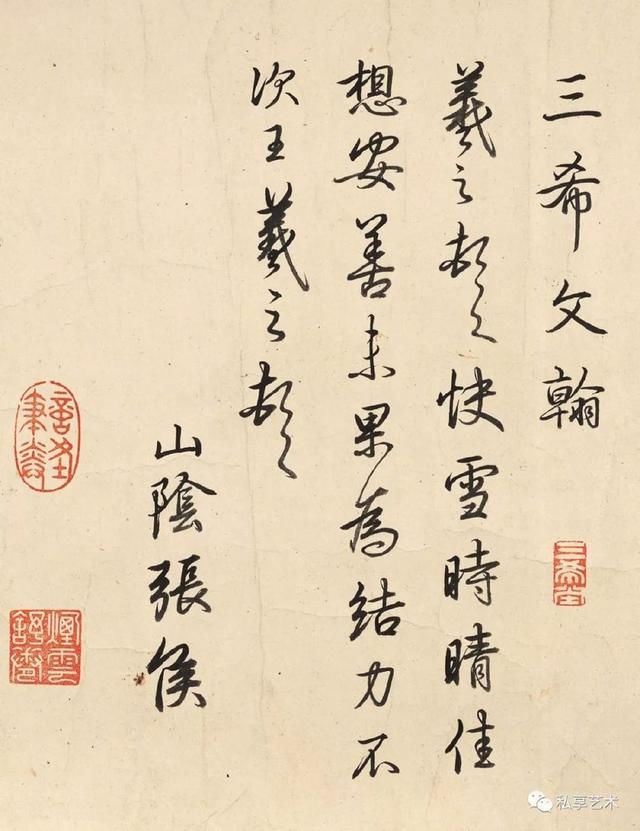 三希文翰
羲之頓首快雪時晴佳
想安善未果為結力不
次王羲之頓首
山陰張侯
三希堂
煙雲舒卷
私享艺术